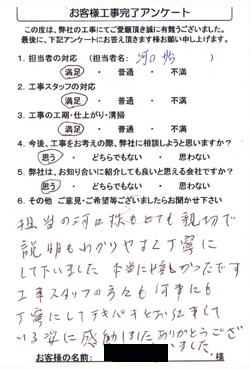 お客様工事完了アンケート
この度は、弊社の工事にてご愛顧頂き誠に有難うございました。
最後に、下記アンケートにお答え頂きます様お願い申し上げます。
1. 担当者の対応 (担当者名: 河口 )
満足 ・ 普通 ・ 不満
2. 工事スタッフの対応
満足 ・ 普通 ・ 不満
3. 工事の工期・仕上がり・清掃
満足 ・ 普通 ・ 不満
4. 今後、工事をお考えの際、弊社に相談しようと思いますか?
思う ・ どちらでもない ・ 思わない
5. 弊社は、お知り合いに紹介しても良いと思える会社ですか?
思う ・ どちらでもない ・ 思わない
6. その他 ご意見・ご希望等ございましたらお聞かせ下さい
担当の河口様もとても親切で
説明もわかりやすく丁寧に
して下いました 本当に良かったです
工事スタッフの方々も何事にも
丁寧にしてテキパキとお仕事して
いる姿に感動しました ありがとうござ
いました。
お客様の名前: 様